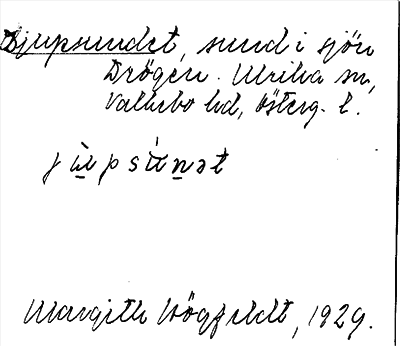 Djupsundet, sund i sjön
Drögen. Ulrika sn,
Vallerbo hd, Österg. l.
j ù̳ p s ú n ə t
Margith Högfeldt, 1929.